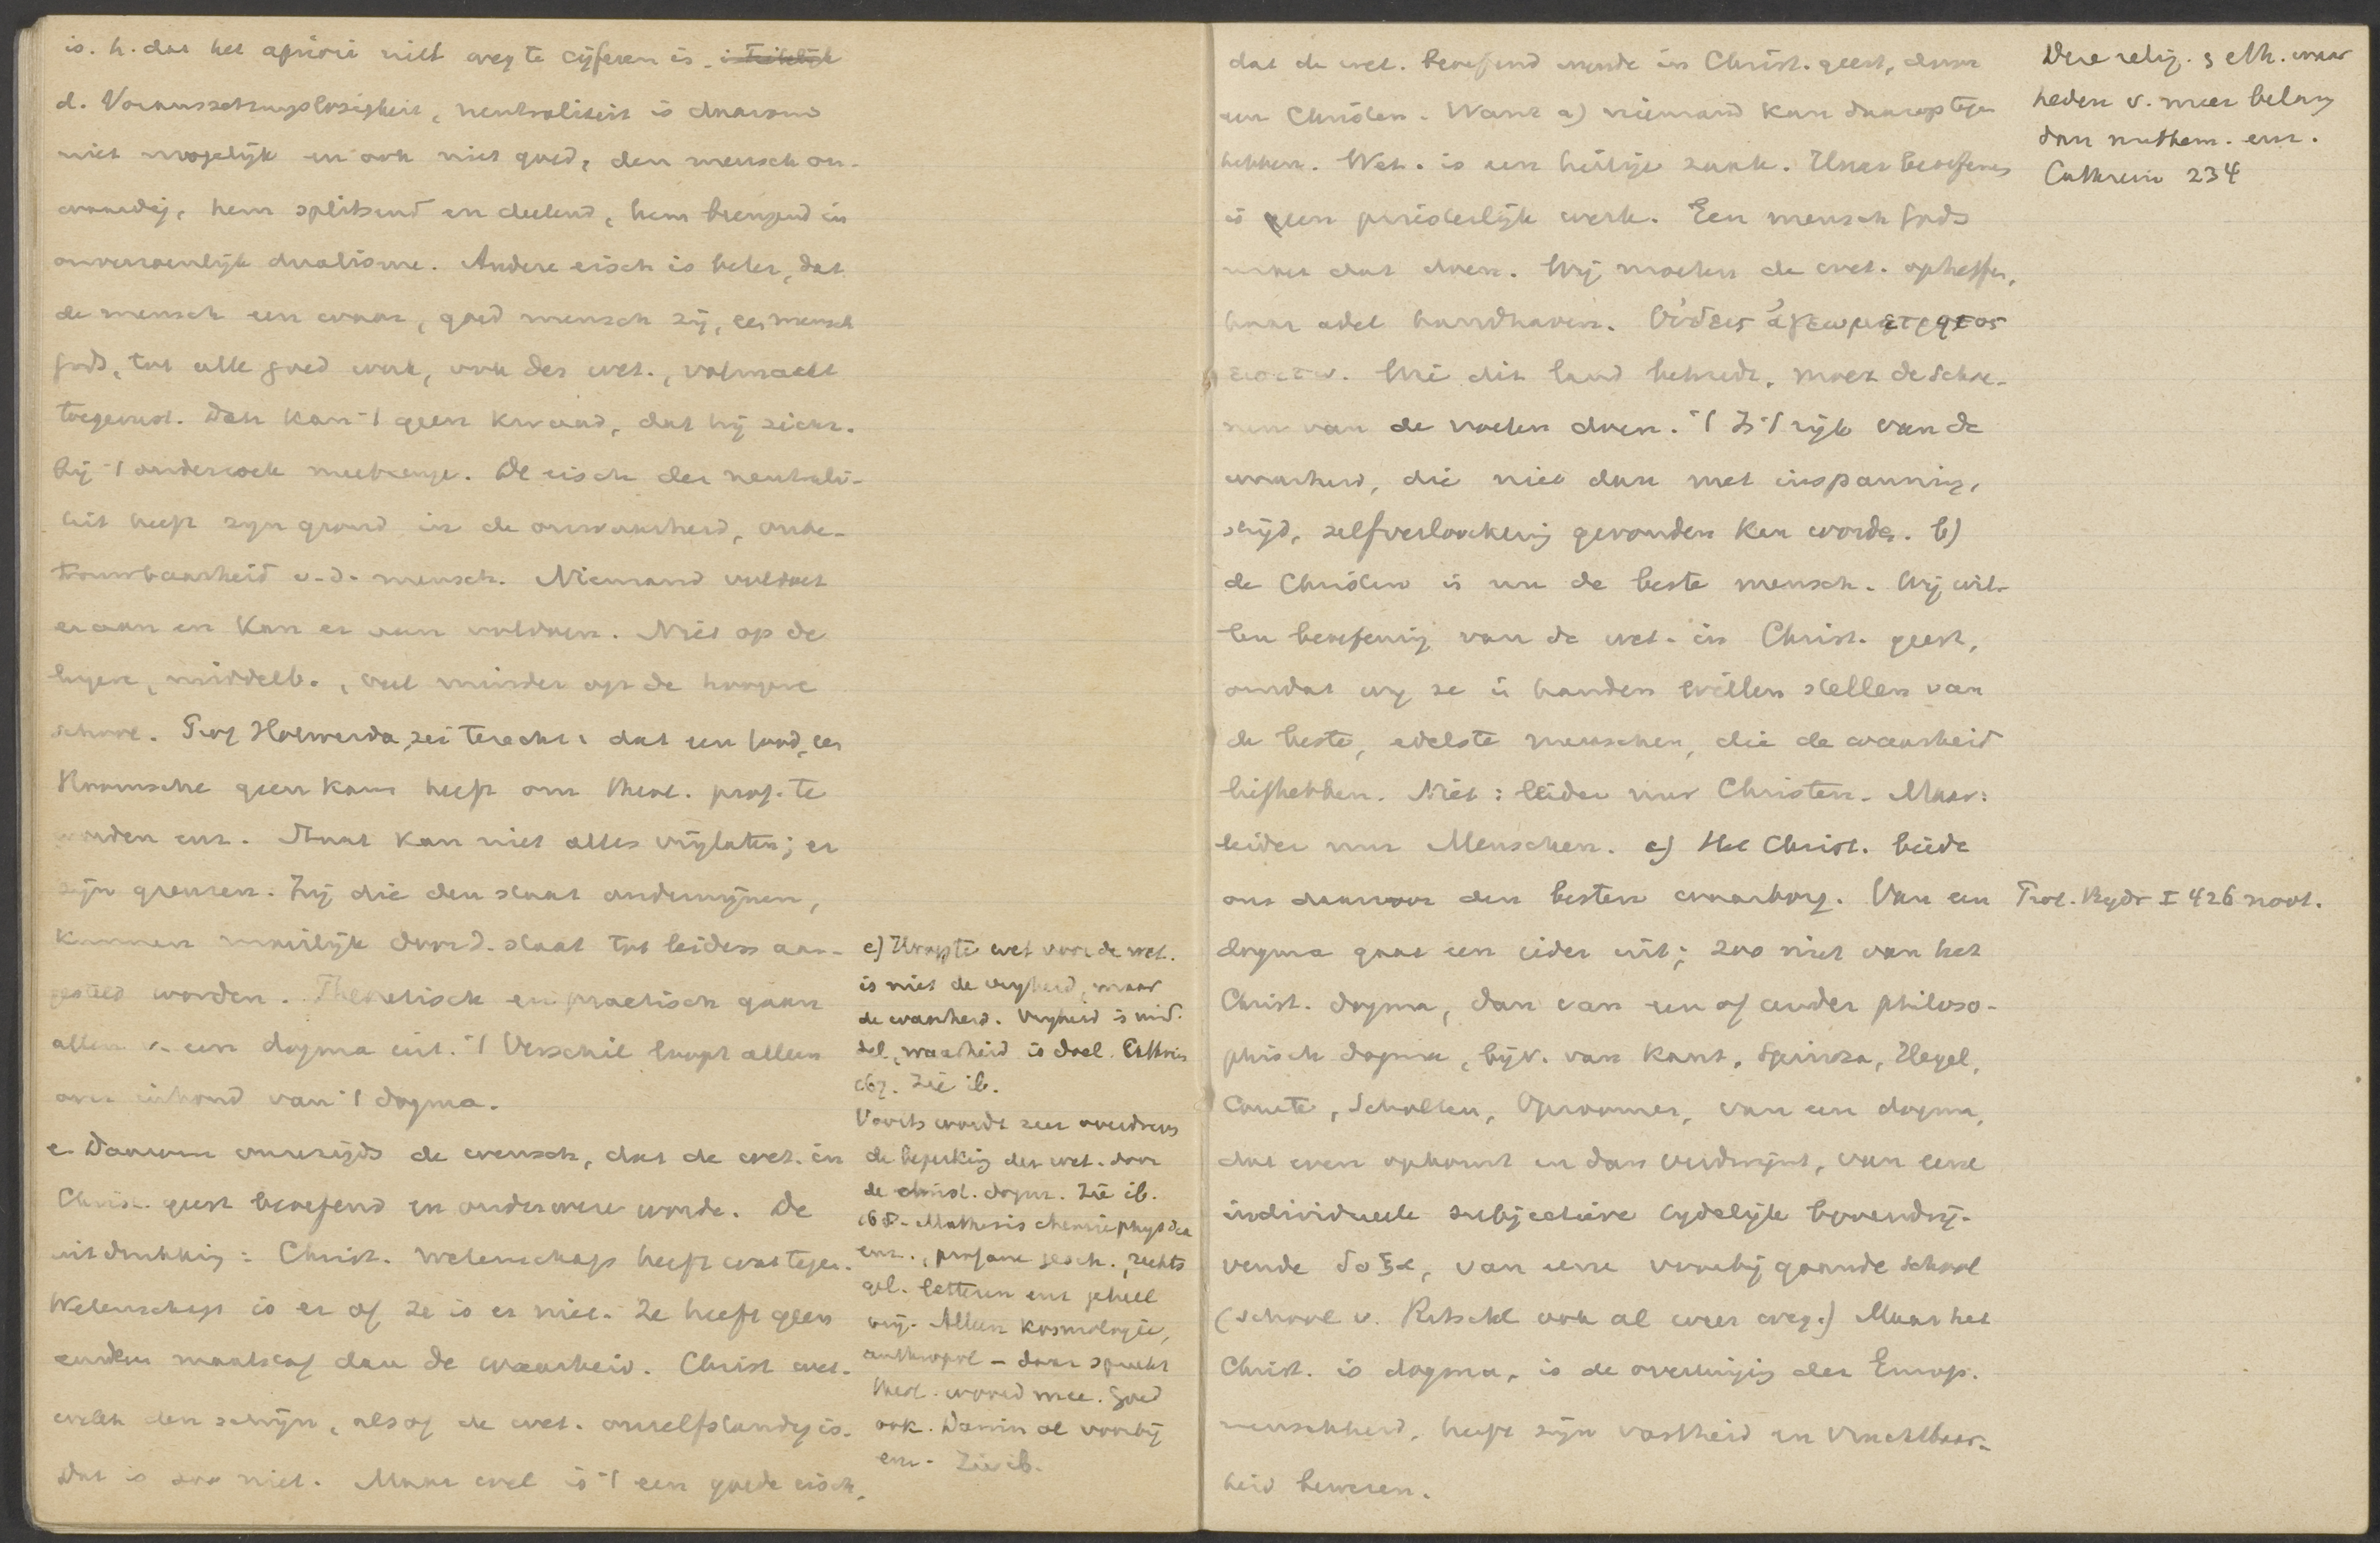 is. h. dat het apriori niet weg te cijferen is.
d. Voraussetzungslosigkeit, neutraliteit is daarom
niet mogelijk en ook niet goed, den mensch on-
waardig, hem splitsend en deelend, hem brengend in
onverzoenlijk dualisme. Andere eisch is beter, dat
de mensch een waar, goed mensch zij, een mensch
Gods, tot alle goed werk, ook der wet., volmaakt
toegerust. Dan kan 't geen kwaad, dat hij zich
bij 't onderzoek meebrenge. De eisch der neutrali-
teit heeft zijn grond in de onwaarheid, onbe-
trouwbaarheid v. d. mensch. Niemand voldoet
eraan en kan er aan voldoen. Niet op de
lagere, middelb., veel minder op de hoogere
school. Prof Holwerda zei terecht: dat een Jood, een
Roomsche geen kans heeft om theol. prof. te
worden enz. Staat kan niet alles vrijlaten; er
zijn grenzen. Zij die den staat ondermijnen,
kunnen moeilijk door d. staat tot leiders aan-
gesteld worden. Theoretisch en practisch gaan
allen v. een dogma uit. 't Verschil loopt alleen
over inhoud van 't dogma.
e. Daarom onzerzijds de wensch, dat de wet. in
Christ. geest beoefend en onderwezen worde. De
uitdrukking: Christ. wetenschap heeft wat tegen.
Wetenschap is er of ze is er niet. Ze heeft geen
anderen maatstaf dan de waarheid. Christ wet.
wekt den schijn, alsof de wet. onzelfstandig is.
Dat is zoo niet. Maar wel is 't een goede eisch,
e) Hoogste wet voor de wet.
is niet de vrijheid, maar
de waarheid. Vrijheid is mid-
del, waarheid is doel. Cathrein
Zie ib.
Voorts wordt zeer overdreven
de beperking der wet. door
de christ. dogm. Zie ib.
Mathesis chemie physica
enz., profane gesch., rechts
gel. letteren enz geheel
vrij. Alleen kosmologie,
anthropol – daar spreekt
theol. woord mee. Goed
ook. Darwin al voorbij
enz. Zie ib.
dat de wet. beoefend worde in Christ. geest, door
een Christen. Want a) niemand kan daarop tegen
hebben. Wet. is een heilige zaak. Haar beoefenen
is geen profesterlijk werk. Een mensch Gods
moet dat doen. Wij moeten de wet. opheffen,
haar adel handhaven. Οὐδεις ἀγεωμετρητος
εισιτω. Wie dit land betreedt, moet de schoe-
nen van de voeten doen. 't Is 't rijk van de
waarheid, die niet dan met inspanning,
strijd, zelfverloochening gevonden kan worden. b)
de Christen is nu de beste mensch. Wij wil-
len beoefening van de wet. in Christ. geest,
omdat wij ze in handen willen stellen van
de beste, edelste menschen, die de waarheid
liefhebben. Niet: leider nur Christen. Maar:
leider nur Menschen. c) Het Christ. biedt
ons daarvoor den besten waarborg. Van een
dogma gaat een ieder uit; zoo niet van het
Christ. dogma, dan van een of ander philoso-
phisch dogma, bijv. van Kant, Spinoza, Hegel,
Comte, Scholten, Opzoomer, van een dogma,
dat even opkomt en dan verdwijnt, van eene
individueele subjectieve tijdelijke bovendrij-
vende δοξα, van eene voorbij gaande school
(School v. Ritschl ook al weer weg.) Maar het
Christ. is dogma, is de overtuiging der Europ.
menschheid, heeft zijn vastheid en vruchtbaar-
heid bewezen.
Deze relig. & eth. waar
heden v. meer belang
dan mathem. enz.
Cathrein 234
Prot. Bijdr I 426 noot.